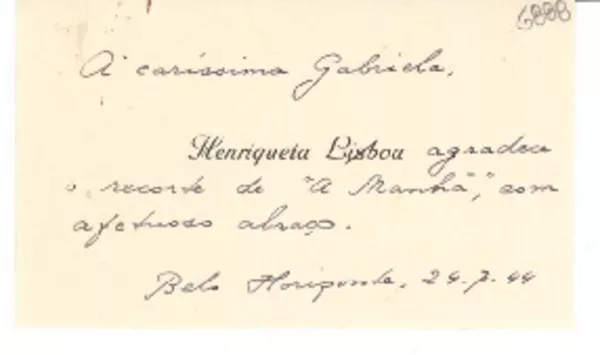 6888
À caríssima Gabriela,
Henriqueta Lisboa agradece
o recorte de "A Manhã", com
afetuoso abraço.
Belo Horizonte, 24.7.44